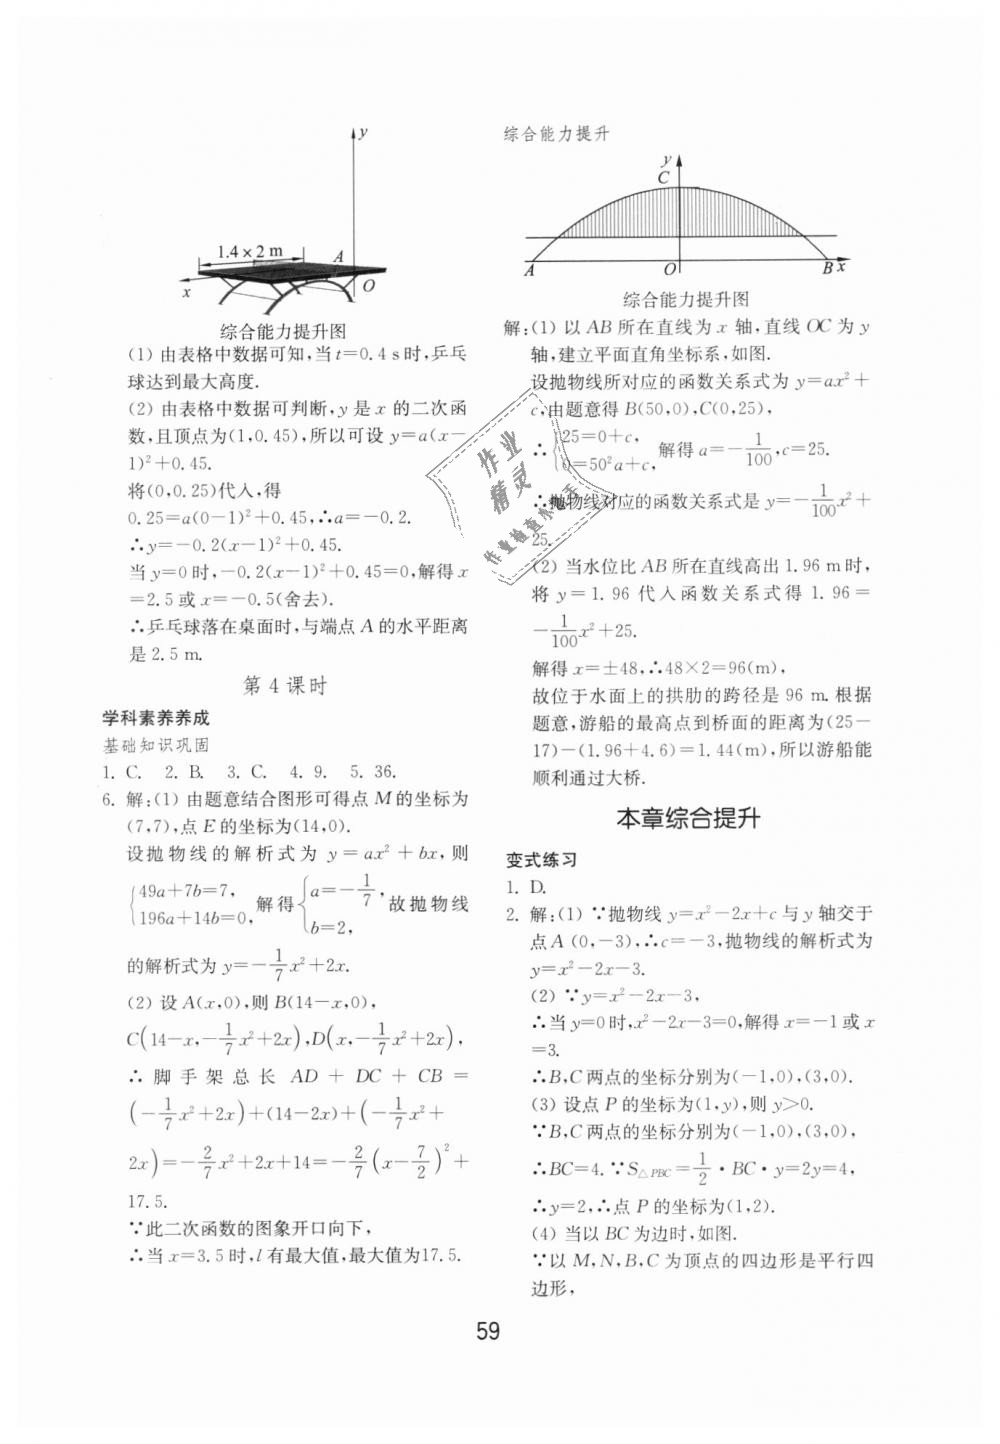 y
1.4×2 m
A
x
O
综合能力提升图
(1) 由表格中数据可知,当t=0.4 s时,乒乓
球达到最大高度.
(2) 由表格中数据可判断,y 是 x 的二次函
数,且顶点为(1,0.45),所以可设 y=a(x-
1)²+0.45.
将(0,0.25)代入,得
0.25=a(0-1)²+0.45,∴a=-0.2.
∴y=-0.2(x-1)²+0.45.
当y=0时,-0.2(x-1)²+0.45=0,解得x
=2.5或x=-0.5(舍去).
∴乒乓球落在桌面时,与端点 A 的水平距离
是 2.5 m.
第 4 课时
学科素养养成
基础知识巩固
1. C. 2. B. 3. C. 4. 9. 5. 36.
6. 解:(1) 由题意结合图形可得点 M 的坐标为
(7,7),点 E 的坐标为(14,0).
设抛物线的解析式为 y=ax²+bx,则
{49a+7b=7, 196a+14b=0, 解得 {a=-1/7, b=2, 故抛物线
的解析式为 y=-1/7x²+2x.
(2) 设 A(x,0),则 B(14-x,0),
C(14-x,-1/7x²+2x),D(x,-1/7x²+2x),
∴ 脚手架总长 AD + DC + CB =
(-1/7x²+2x)+(14-2x)+(-1/7x²+
2x)=-2/7x²+2x+14=-2/7(x-7/2)²+
17.5.
∵此二次函数的图象开口向下,
∴当 x=3.5 时,l 有最大值,最大值为17.5.
综合能力提升
y
C
A
O
B
x
综合能力提升图
解:(1) 以 AB 所在直线为 x 轴,直线 OC 为 y
轴,建立平面直角坐标系,如图.
设抛物线所对应的函数关系式为 y=ax²+
c,由题意得 B(50,0),C(0,25),
∴{25=0+c, 0=50²a+c, 解得 a=-1/100,c=25.
∴抛物线对应的函数关系式是 y=-1/100x²+
25.
(2) 当水位比 AB 所在直线高出 1.96 m 时,
将 y=1.96 代入函数关系式得 1.96=
-1/100x²+25.
解得 x=±48,∴48×2=96(m),
故位于水面上的拱肋的跨径是 96 m. 根据
题意,游船的最高点到桥面的距离为(25-
17)-(1.96+4.6)=1.44(m),所以游船能
顺利通过大桥.
本章综合提升
变式练习
1. D.
2. 解:(1) ∵抛物线 y=x²-2x+c 与 y 轴交于
点 A (0,-3),∴c=-3,抛物线的解析式为
y=x²-2x-3.
(2) ∵y=x²-2x-3,
∴当 y=0时,x²-2x-3=0,解得 x=-1或 x
=3.
∴B,C 两点的坐标分别为(-1,0),(3,0).
(3) 设点 P 的坐标为(1,y),则 y>0.
∵B,C 两点的坐标分别为(-1,0),(3,0),
∴BC=4. ∵S△PBC=1/2·BC·y=2y=4,
∴y=2,∴点 P 的坐标为(1,2).
(4) 当以 BC 为边时,如图.
∵以 M,N,B,C 为顶点的四边形是平行四
边形,
作业
精灵
作业检查小助手
59